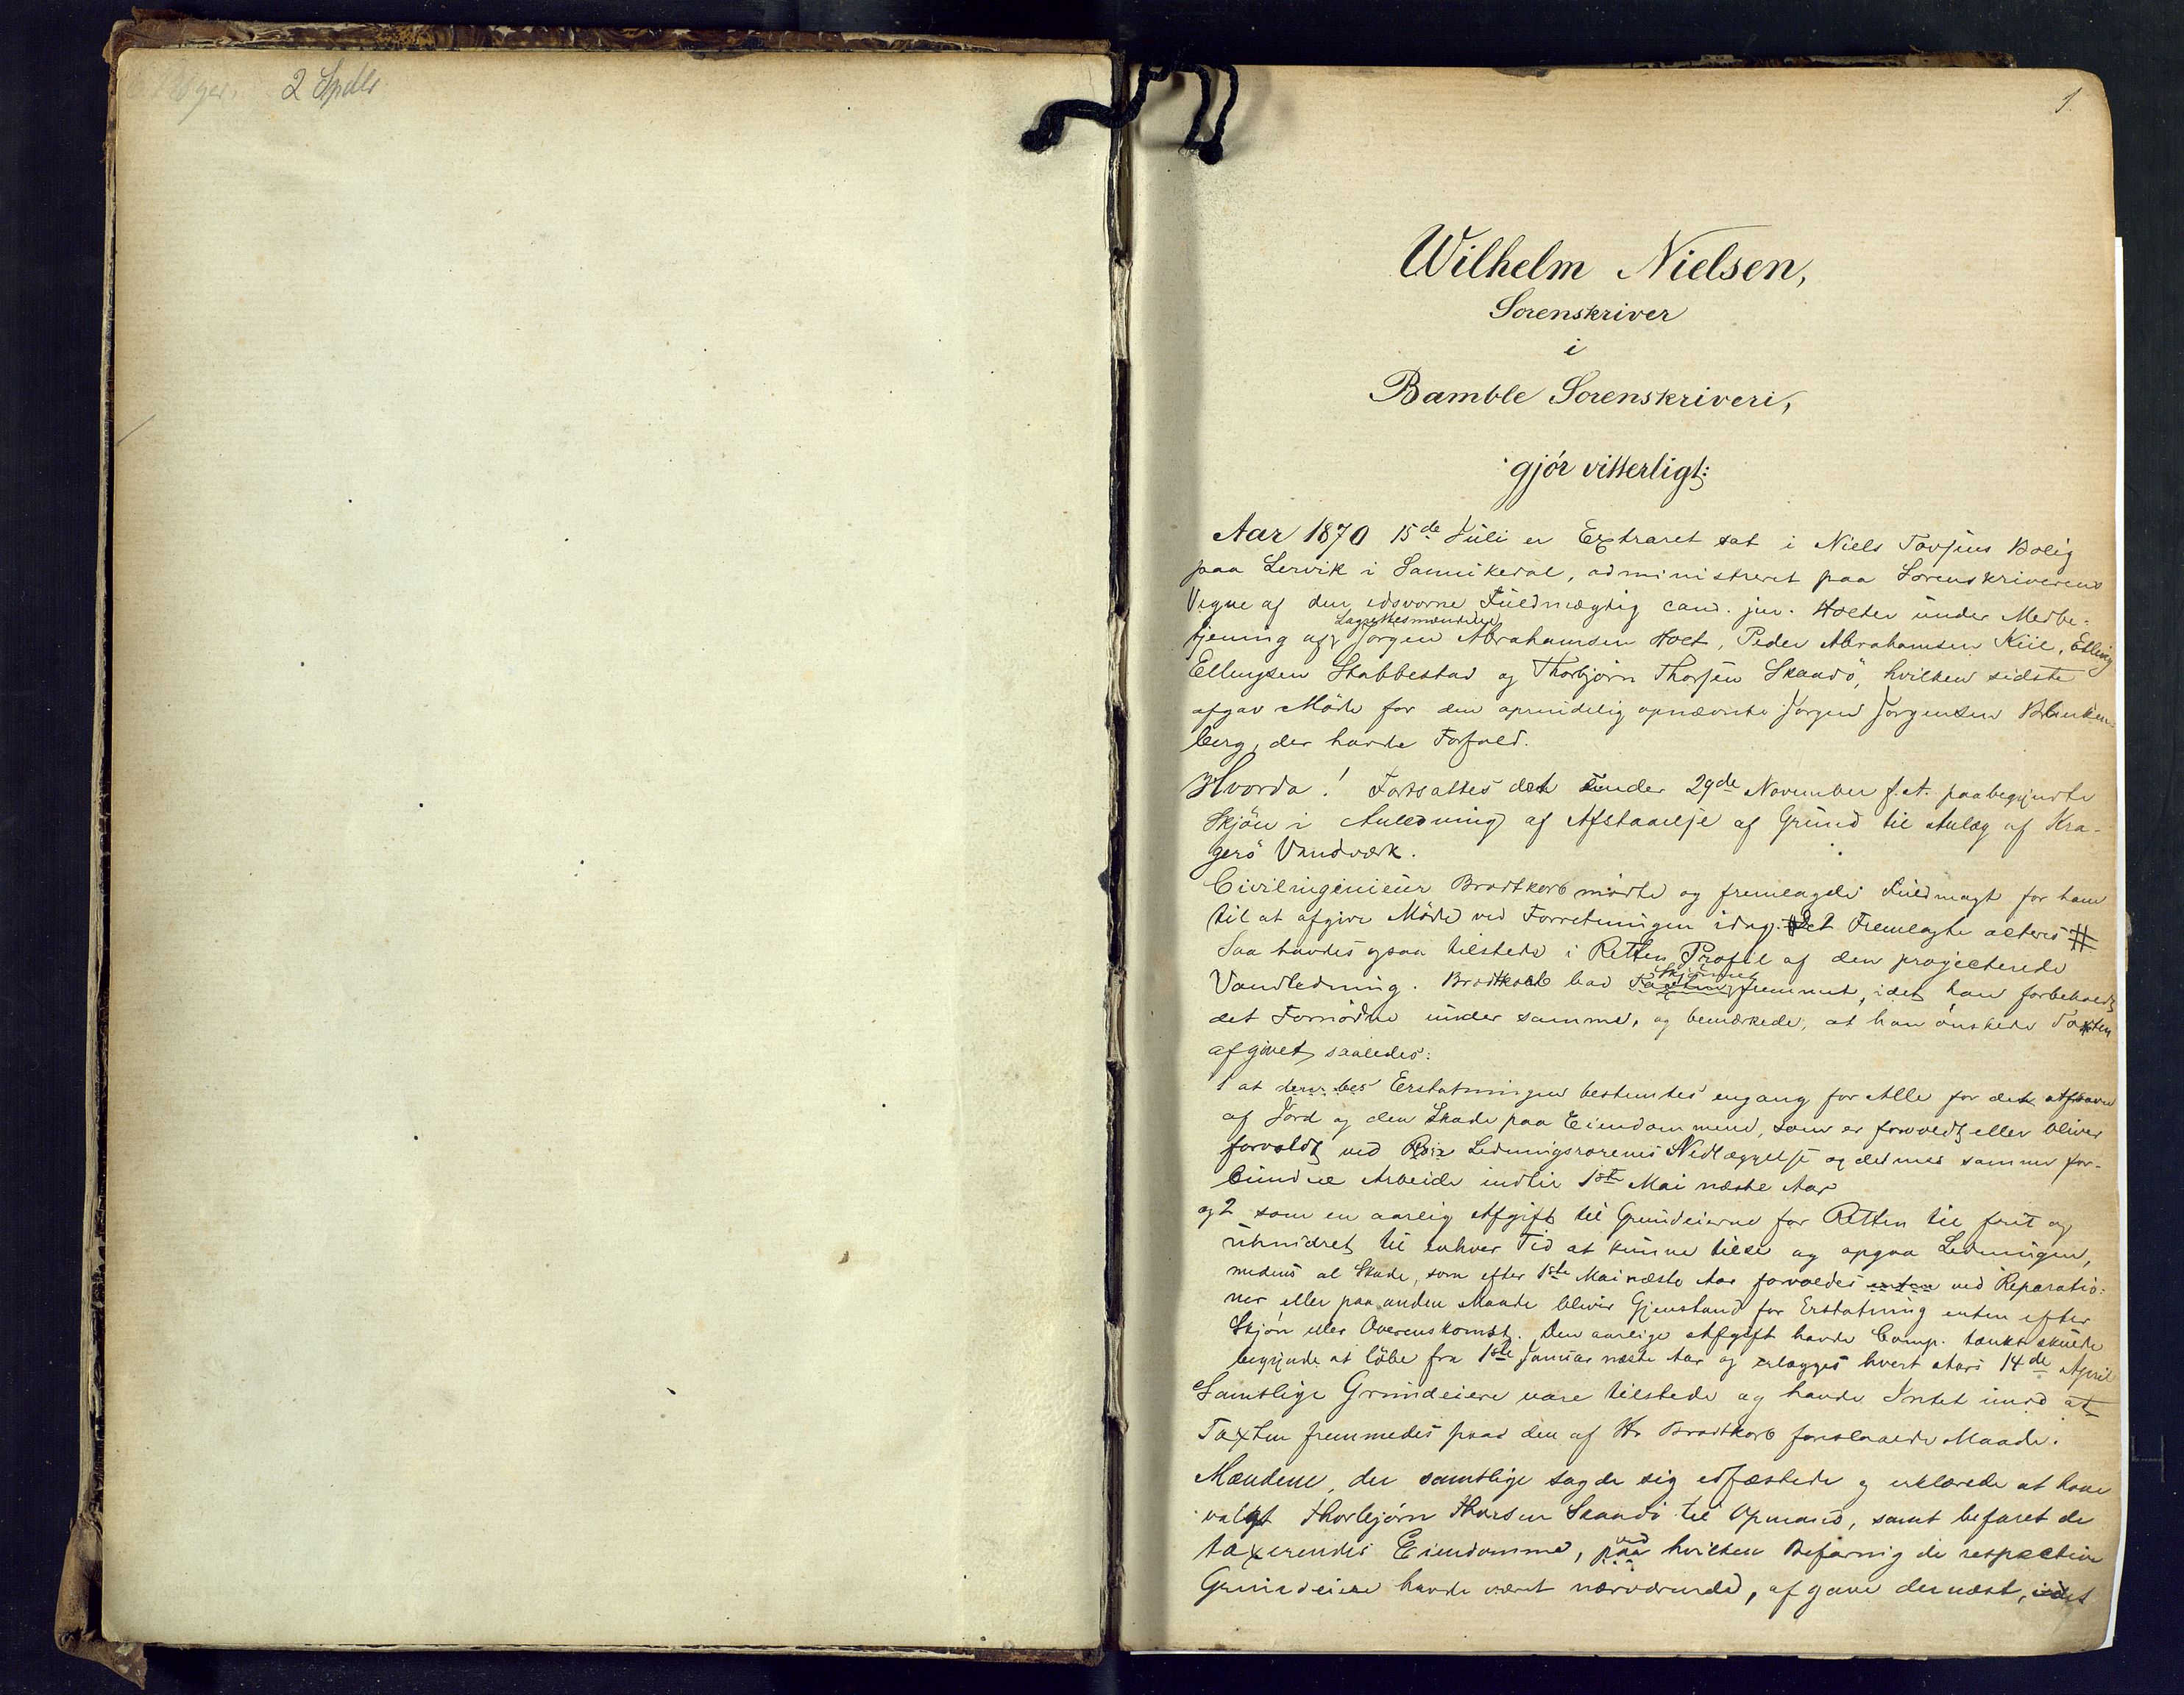 2 Spdlr
1.
Wilhelm Nielsen,
Sorenskriver
i
Bamble Sorenskriveri,
gjör vitterligt:
Aar 1870 15de Juli er Extraret sat i Niels Bolig
paa Lervik i Sannikedal, administreret paa Sorenskriverens
Vegne af den edsvorne Fuldmægtig cand. jur. Holter under Medbe-
tjening af Lagrettesmændene Jörgen Abrahamsen Holt, Peder Abrahamsen Kiil, Elling
Ellingsen Stabbestad og Thorbjörn Skaadö, hvilken sidste
afgav Möde for den oprindelig opnævnte Jörgen Jörgensen Blanken-
berg, der havde Forfald.
Hvorda! Fortsattes det under 29de November f. A. paabegyndte
Skjön i Anledning af Afstaaelse af Grund til Anlæg af Kra-
gerö Vandværk.
Civilingenieur Bradtkorb mödte og fremlagde Fuldmagt for ham
til at afgive Möde ved Forretningen idag. Det Fremlagte acteres #
Saa havdes ogsaa tilstede i Retten Profil af den projecterede
Vandledning. Bradtkorb bad Taxten Skjönnet fremmet, idet han forbeholdt
det Fornödne under samme, og bemærkede, at han önskede Taxten
afgivet saaledes:
1 at Erstatningen bestemtes engang for Alle for det
af Jord og den Skade paa Eiendommene, som er forvoldt eller bliver
forvoldt ved Ledningsrörenes Nedlæggelse og det med samme for-
bundne Arbeide indtil 1ste Mai næste Aar
og 2 som en aarlig Afgift til Grundeierne for Retten til frit og
uhindret til enhver Tid at kunne tilse og opgaa Ledningen,
medens al Skade, som efter 1ste Mai næste Aar forvoldes enten ved Reparatio-
ner eller paa anden Maade bliver Gjenstand for Erstatning enten efter
Skjön eller Overenskomst. Den aarlige Afgift havde Comp. tænkt skulde
begynde at löbe fra 1ste Januar næste Aar og erlægges hvert Aars 14de April
Samtlige Grundeiere vare tilstede og havde Intet imod at
Taxten fremmedes paa den af Hr Bradtkorb foreslaaede Maade.
Mændene, der samtlige sagde sig edfæstede og erklærede at have
valgt Thorbjörn Skaadö til Opmand, samt befaret de
taxerendes Eiendomme, paa ved hvilken Befaring de respective
Grundeiere havde været nærværende, afgave dernæst, idet